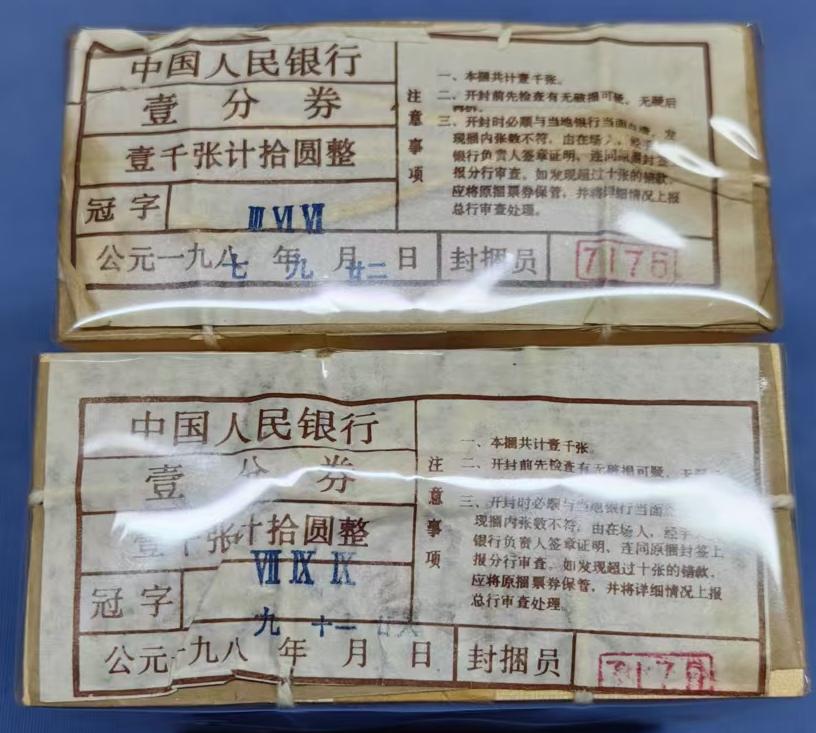 中国人民银行
壹分券
壹千张计拾圆整
冠字 Ⅲ Ⅵ Ⅶ
公元一九八七年九月廿二日 封捆员 7175
注意事项
一、本捆共计壹千张。
二、开封前先检查有无破损可疑，无疑后
再拆。
三、开封时必须与当地银行当面点清，发
现捆内张数不符，由在场人，经手
银行负责人签章证明、连同原捆封签
报分行审查。如发现超过十张的错款，
应将原捆票券保管，并将详细情况上报
总行审查处理。
中国人民银行
壹分券
壹千张计拾圆整
冠字 Ⅶ Ⅸ Ⅸ
公元一九八九年十一月日 封捆员
注意事项
一、本捆共计壹千张。
二、开封前先检查有无破损可疑，无
三、开封时必须与当地银行当面
现捆内张数不符，由在场人，经手
银行负责人签章证明、连同原捆封签上
报分行审查，如发现超过十张的错款，
应将原捆票券保管，并将详细情况上报
总行审查处理。